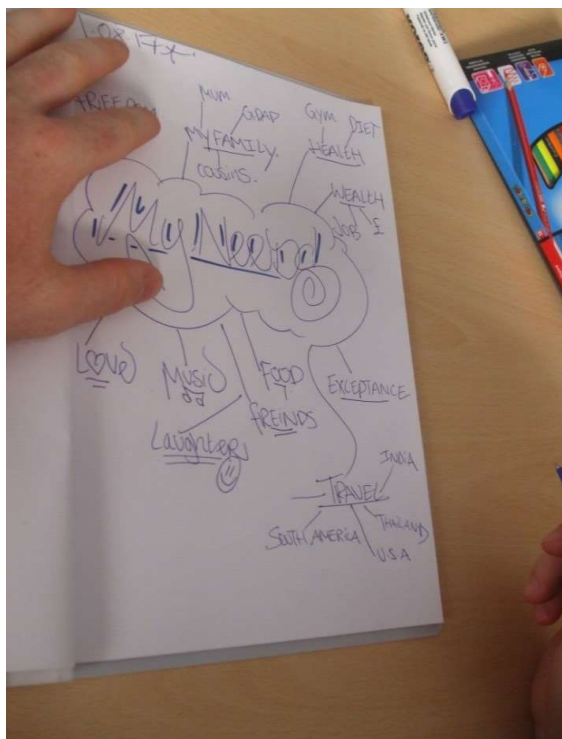 MUM
GDAD
MY FAMILY.
COUSINS.
GYM
DIET
HEALTH
WEALTH
JOB
£
"My Needs"
LOVE
MUSIC
FOOD
FREINDS
LAUGHTER
EXCEPTANCE
TRAVEL
INDIA
THAILAND
USA
SOUTH AMERICA